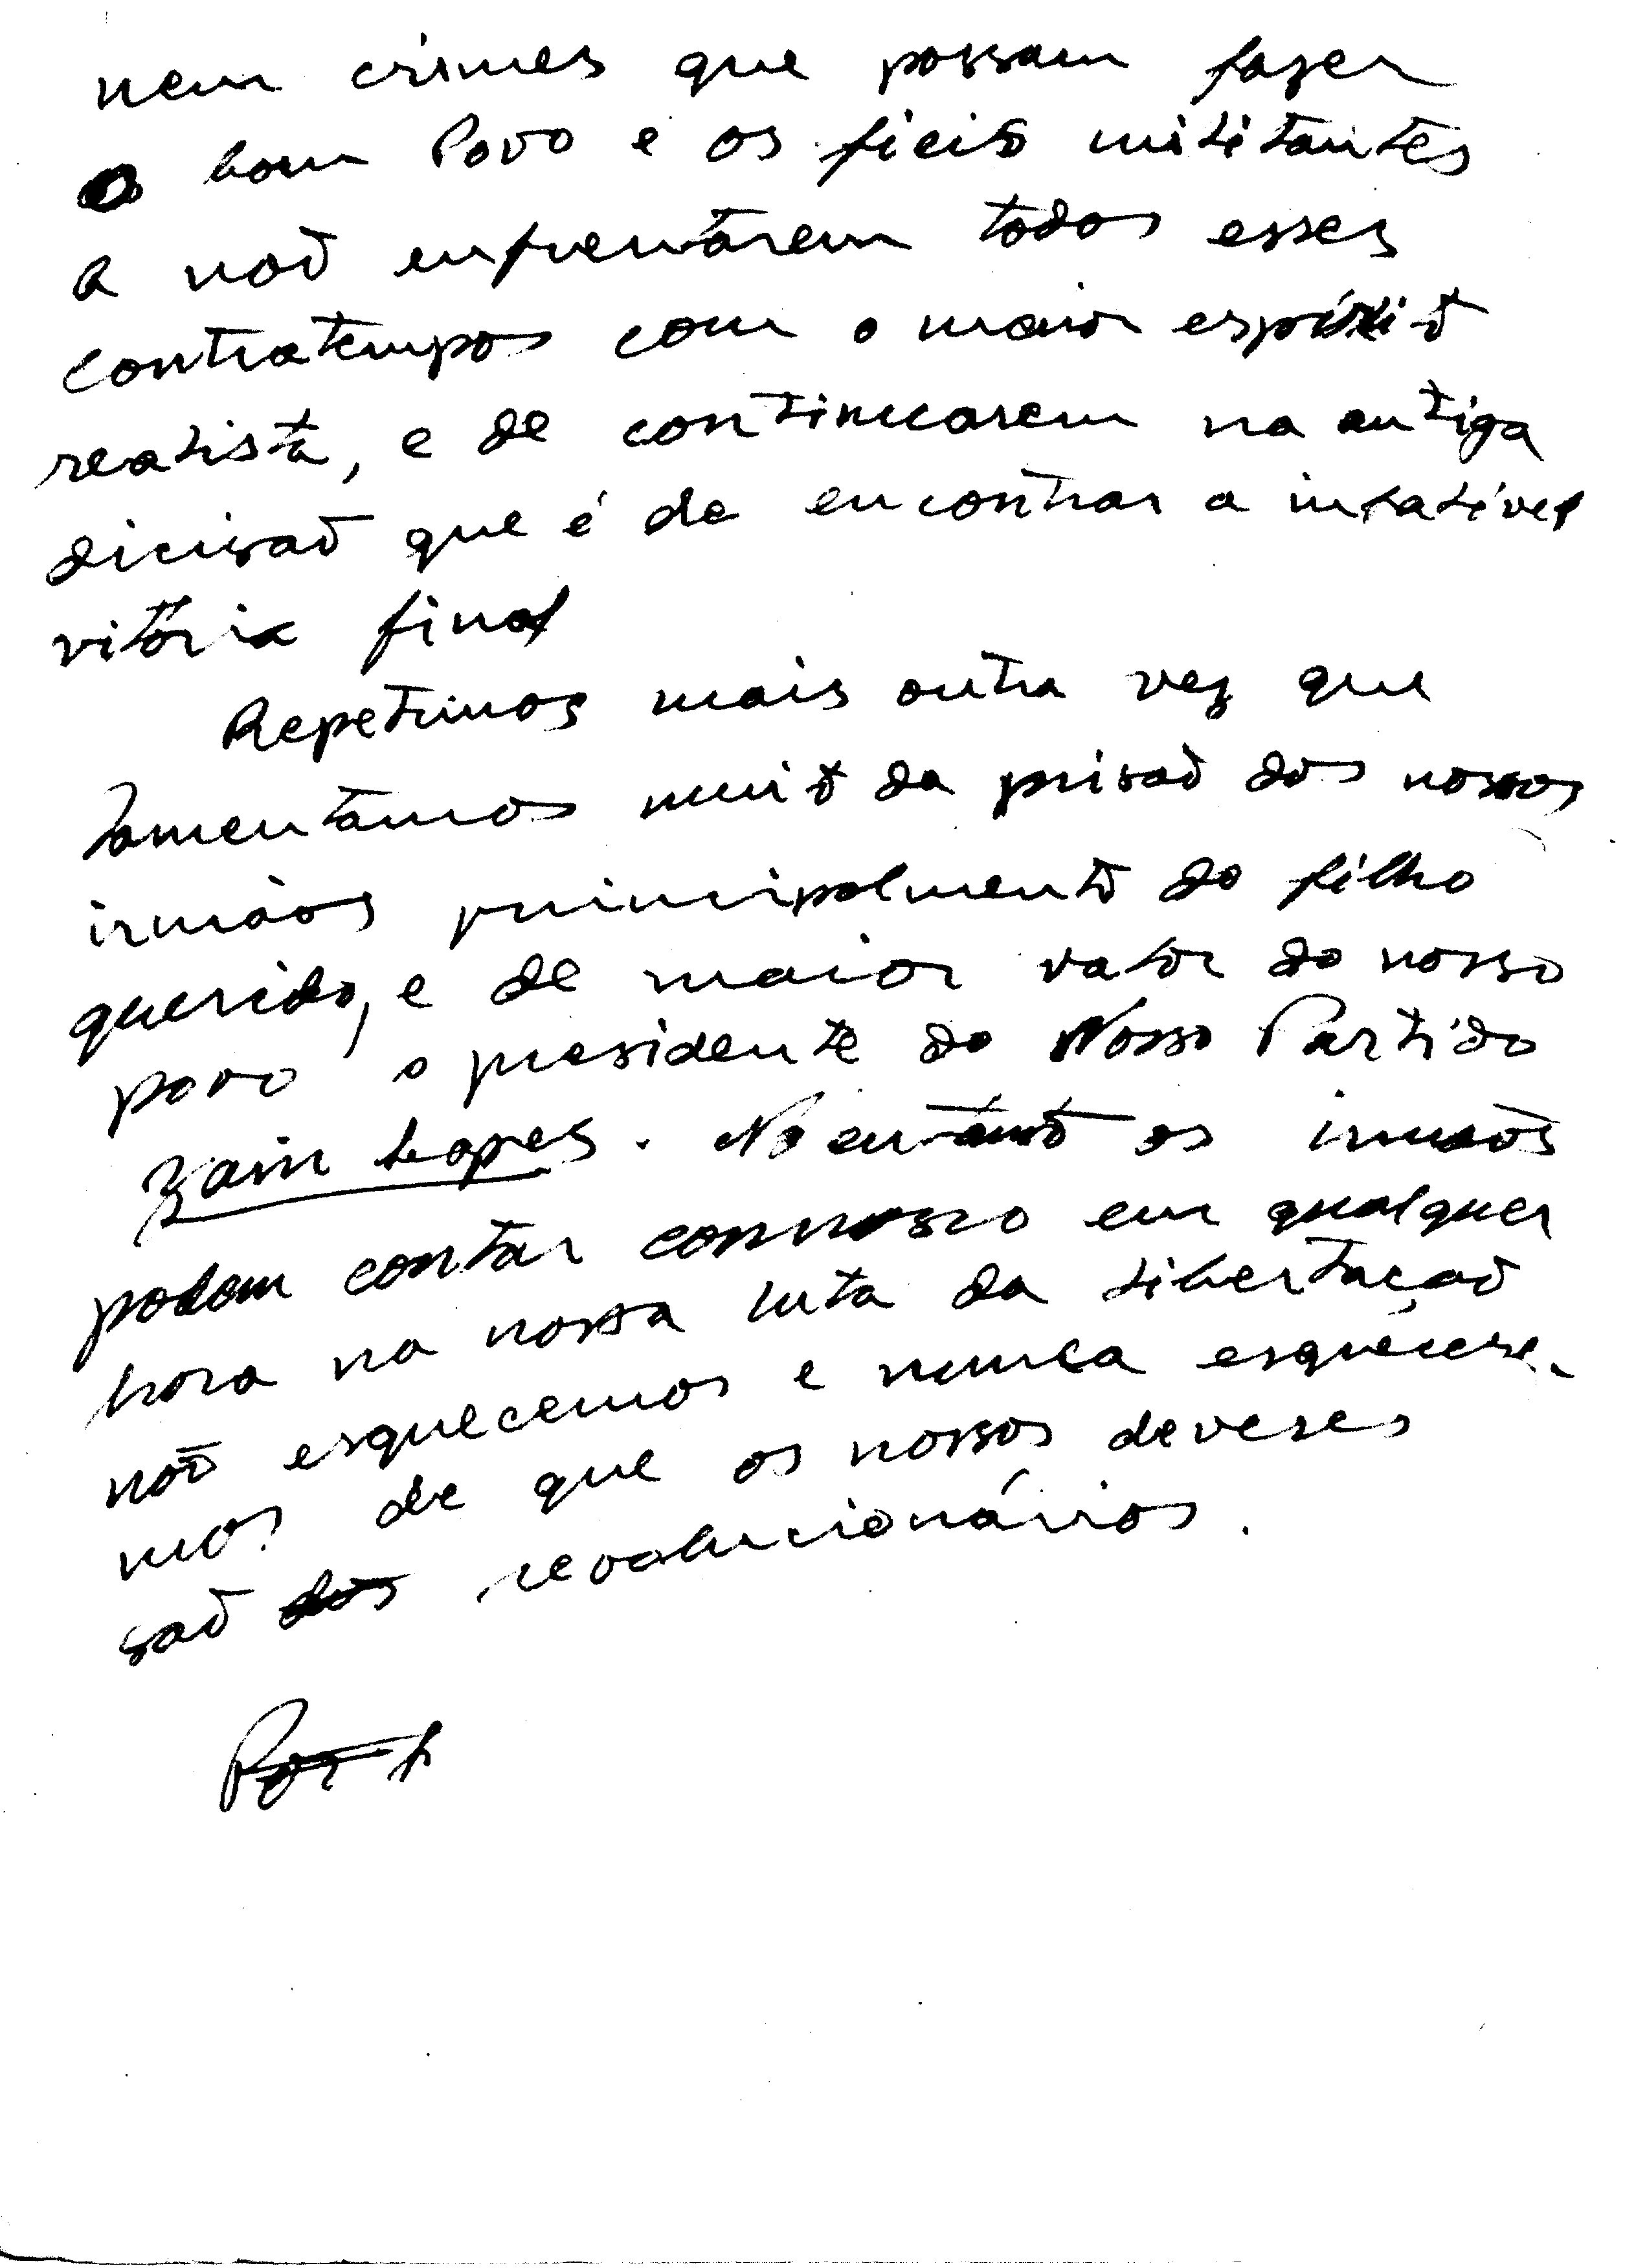 nem crimes que possam fazer
o bom Povo e os fieis militantes
a não enfrentarem todos esses
contratempos com o maior espírito
realista, e de continuarem na antiga
dicisão que é de encontrar a infalível
vitória final
Repetimos mais outra vez que
lamentamos muito da prisão dos nossos
irmãos principalmente do filho
querido, e de maior valor do nosso
povo o presidente do Nosso Partido
Zain Lopes. No entanto os irmãos
podem contar connosco em qualquer
hora na nossa luta da libertação
não esquecemos e nunca esquecere-
mos de que os nossos deveres
são revolucionários.